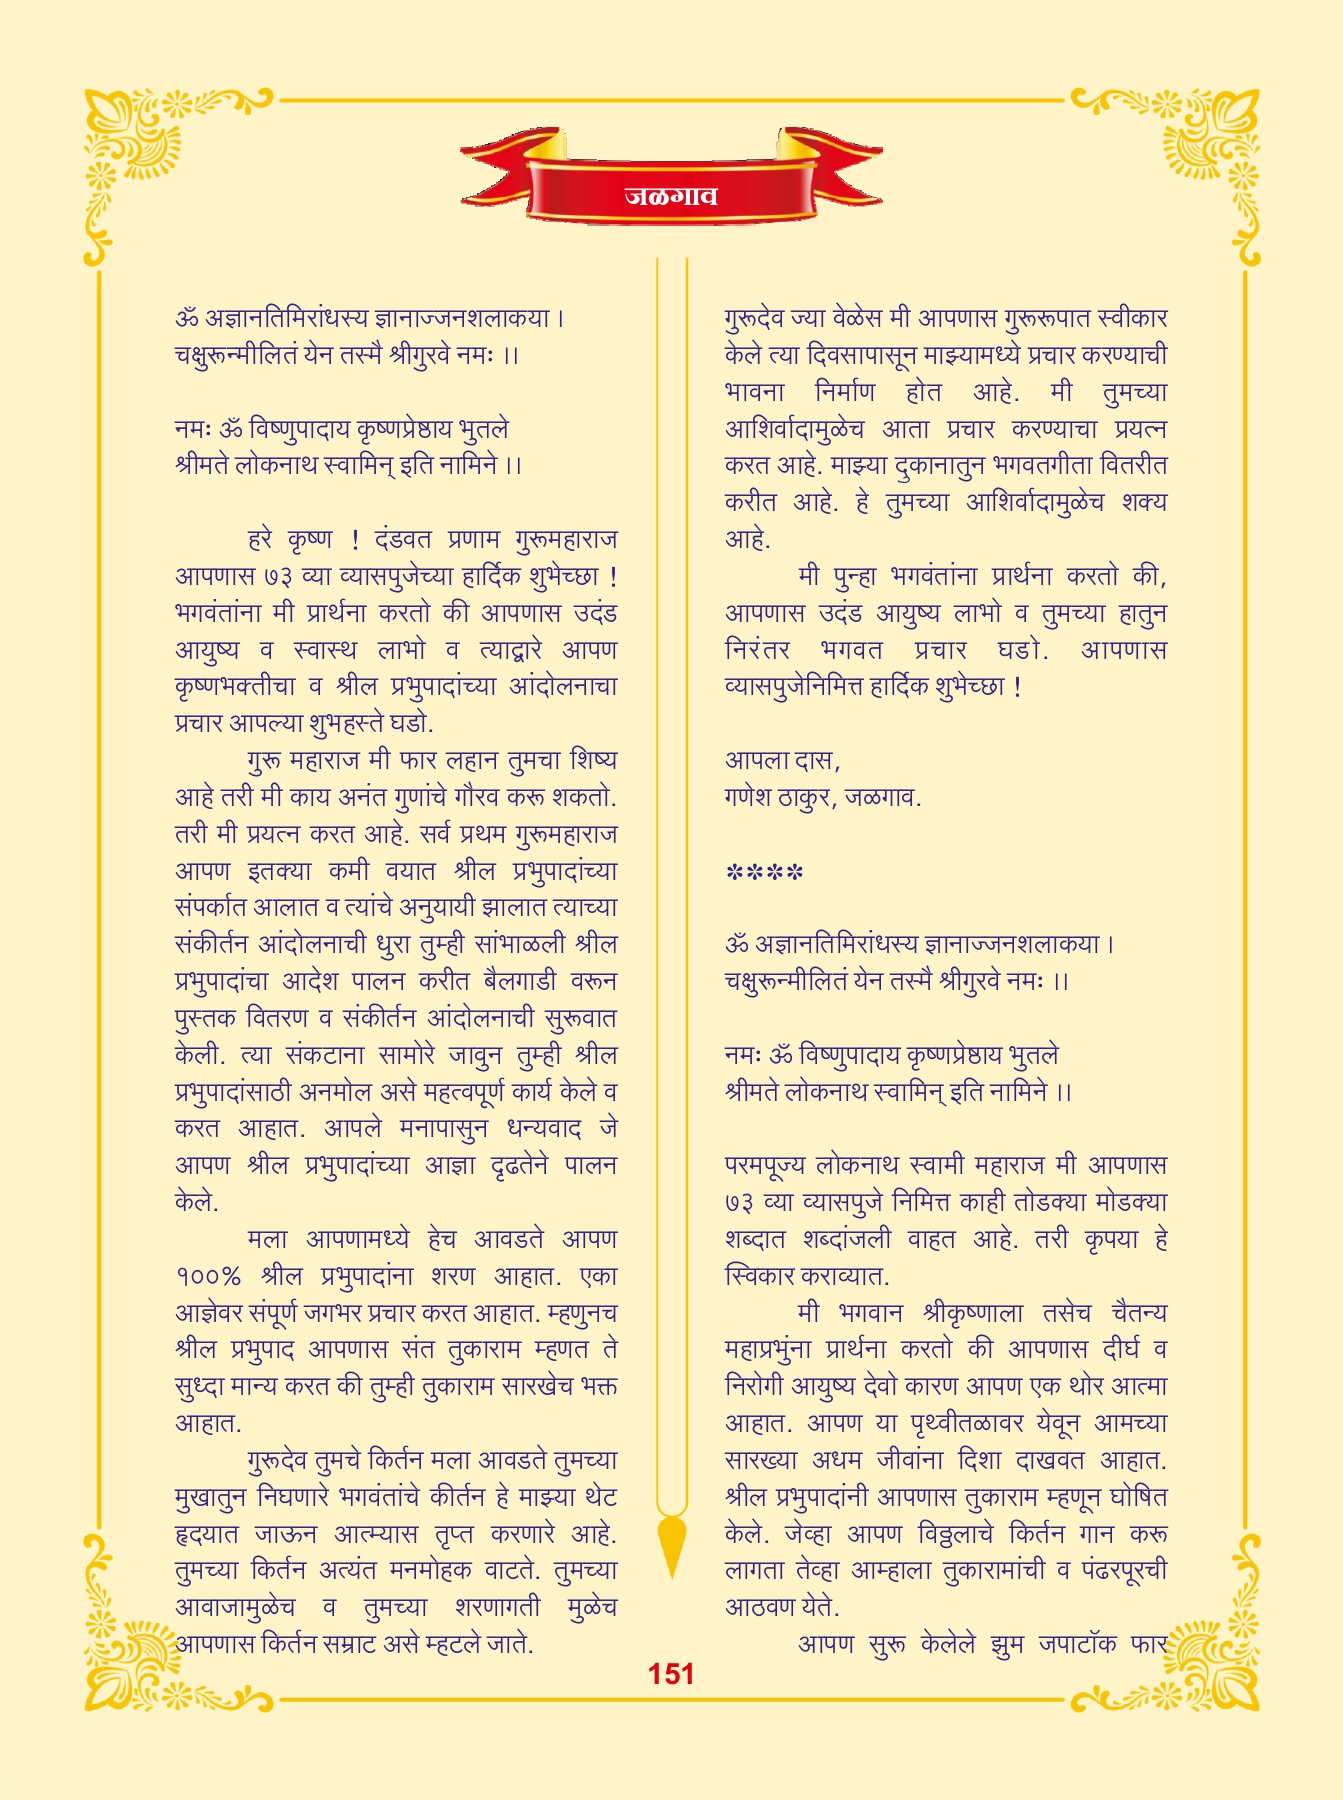 जळगाव
ॐ अज्ञानतिमिरांधस्य ज्ञानाज्जनशलाकया ।
चक्षुरून्मीलितं येन तस्मै श्रीगुरवे नमः ।।
नमः ॐ विष्णुपादाय कृष्णप्रेष्ठाय भुतले
श्रीमते लोकनाथ स्वामिन् इति नामिने ।।
हरे कृष्ण ! दंडवत प्रणाम गुरूमहाराज
आपणास ७३ व्या व्यासपुजेच्या हार्दिक शुभेच्छा !
भगवंतांना मी प्रार्थना करतो की आपणास उदंड
आयुष्य व स्वास्थ लाभो व त्याद्वारे आपण
कृष्णभक्तीचा व श्रील प्रभुपादांच्या आंदोलनाचा
प्रचार आपल्या शुभहस्ते घडो.
गुरू महाराज मी फार लहान तुमचा शिष्य
आहे तरी मी काय अनंत गुणांचे गौरव करू शकतो.
तरी मी प्रयत्न करत आहे. सर्व प्रथम गुरूमहाराज
आपण इतक्या कमी वयात श्रील प्रभुपादांच्या
संपर्कात आलात व त्यांचे अनुयायी झालात त्याच्या
संकीर्तन आंदोलनाची धुरा तुम्ही सांभाळली श्रील
प्रभुपादांचा आदेश पालन करीत बैलगाडी वरून
पुस्तक वितरण व संकीर्तन आंदोलनाची सुरूवात
केली. त्या संकटाना सामोरे जावुन तुम्ही श्रील
प्रभुपादांसाठी अनमोल असे महत्वपूर्ण कार्य केले व
करत आहात. आपले मनापासुन धन्यवाद जे
आपण श्रील प्रभुपादांच्या आज्ञा दृढतेने पालन
केले.
मला आपणामध्ये हेच आवडते आपण
१००% श्रील प्रभुपादांना शरण आहात. एका
आज्ञेवर संपूर्ण जगभर प्रचार करत आहात. म्हणुनच
श्रील प्रभुपाद आपणास संत तुकाराम म्हणत ते
सुध्दा मान्य करत की तुम्ही तुकाराम सारखेच भक्त
आहात.
गुरूदेव तुमचे किर्तन मला आवडते तुमच्या
मुखातुन निघणारे भगवंतांचे कीर्तन हे माझ्या थेट
हृदयात जाऊन आत्म्यास तृप्त करणारे आहे.
तुमच्या किर्तन अत्यंत मनमोहक वाटते. तुमच्या
आवाजामुळेच व तुमच्या शरणागती मुळेच
आपणास किर्तन सम्राट असे म्हटले जाते.
गुरूदेव ज्या वेळेस मी आपणास गुरूरूपात स्वीकार
केले त्या दिवसापासून माझ्यामध्ये प्रचार करण्याची
भावना निर्माण होत आहे. मी तुमच्या
आशिर्वादामुळेच आता प्रचार करण्याचा प्रयत्न
करत आहे. माझ्या दुकानातुन भगवतगीता वितरीत
करीत आहे. हे तुमच्या आशिर्वादामुळेच शक्य
आहे.
मी पुन्हा भगवंतांना प्रार्थना करतो की,
आपणास उदंड आयुष्य लाभो व तुमच्या हातुन
निरंतर भगवत प्रचार घडो. आपणास
व्यासपुजेनिमित्त हार्दिक शुभेच्छा !
आपला दास,
गणेश ठाकुर, जळगाव.
****
ॐ अज्ञानतिमिरांधस्य ज्ञानाज्जनशलाकया ।
चक्षुरून्मीलितं येन तस्मै श्रीगुरवे नमः ।।
नमः ॐ विष्णुपादाय कृष्णप्रेष्ठाय भुतले
श्रीमते लोकनाथ स्वामिन् इति नामिने ।।
परमपूज्य लोकनाथ स्वामी महाराज मी आपणास
७३ व्या व्यासपुजे निमित्त काही तोडक्या मोडक्या
शब्दात शब्दांजली वाहत आहे. तरी कृपया हे
स्विकार कराव्यात.
मी भगवान श्रीकृष्णाला तसेच चैतन्य
महाप्रभुंना प्रार्थना करतो की आपणास दीर्घ व
निरोगी आयुष्य देवो कारण आपण एक थोर आत्मा
आहात. आपण या पृथ्वीतळावर येवून आमच्या
सारख्या अधम जीवांना दिशा दाखवत आहात.
श्रील प्रभुपादांनी आपणास तुकाराम म्हणून घोषित
केले. जेव्हा आपण विठ्ठलाचे किर्तन गान करू
लागता तेव्हा आम्हाला तुकारामांची व पंढरपूरची
आठवण येते.
आपण सुरू केलेले झुम जपाटॉक फार
151